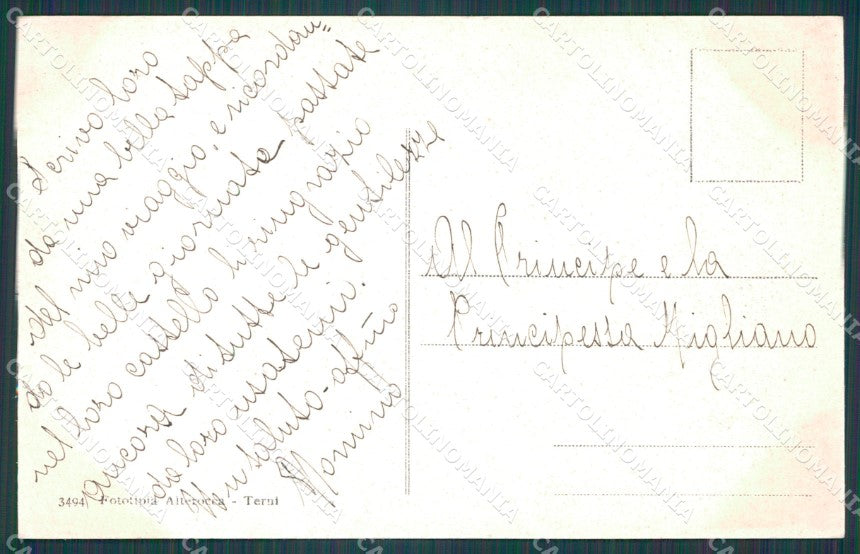 Scrivo loro
da una bella tappa
del mio viaggio, e ricordan=
do le belle giornate passate
nel loro castello, li ringrazio
ancora di tutte le gentilezze
da loro usatemi.
Un saluto affmo
Nomino
Al Principe e la
Principessa Migliano
3494 Fototipia Alterocca - Terni
CARTOLINOMANIA